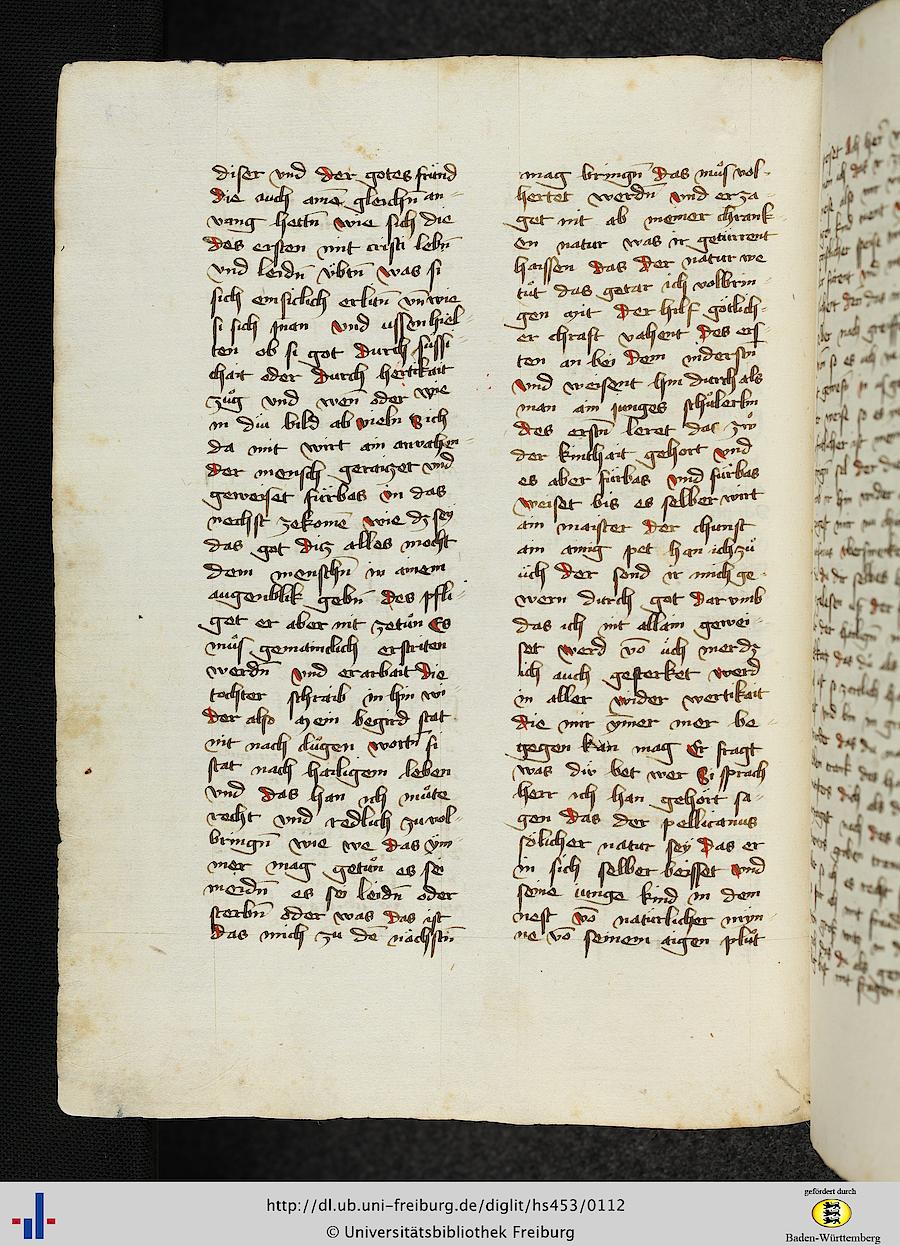 diser vnd der gotes fründ
die auch amē gleichn̄ an-
vang hettn̄ wie sich die
des ersten mit cristi lebn̄
vnd leidn̄ v̈btn̄ was si
sich einsiclich erlitn̄ vn̄ wie
si sich jnan vnd ussen hiel-
ten ob si got durch süssi-
chait oder durch hertikait
zůg vnd wen̄ oder wie
in diu bild ab vieln Sich
da mit wirt ain anvahen-
der mensch geraizet vnd
geweiset fürbas in das
nechst zekomē wie dz sey
das got diz alles mocht
dem menschn̄ in ainem
augenblik gebn̄ des pfli-
get er aber nit zetůn Es
můs gemainclich erstriten
werdn̄ vnd erarbait die
tochter schraib in hin wi
der also Mein begird stat
nit nach clůgen wortn̄ si
stat nach hailigem leben
vnd das han ich müte
recht vnd redlich zu vol-
bringn̄ wie we das ym̄
mer mag getůn es sei
meidn̄ es sei leidn̄ oder
sterbn̄ oder was das ist
das mich zu dē nächstn̄
mag bringn̄ das můs vol-
hertet werdn̄ vnd erza-
get nit ab meiner chrank-
en natur was ir getürrent
haissen das der natur we
tůt das getar ich volbrin-
gen mit der hilf götlich-
er chraft vahent des ers
ten an bei dem nidersten
vnd weisent hin durch als
man ain junges schůlerlin
des erstn̄ leret das zů
der kinthait gehort vnd
es aber fürbas vnd fürbas
weiset bis es selber wirt
ain maister der chunst
ain ainig pet han ich zů
üch der sond ir mich ge-
wern durch got dar vmb
das ich nit allain gewei-
set werd vō üch merdz
ich auch gesterket werd
in aller wider wertikait
die mir ym̄er mer be-
gegen kan mag Er fragt
was diu bet wer Si sprach
herr ich han gehört sa-
gen das der pellicanus
sölicher natur sey das er
in sich selber beisset vnd
seine iunge kind in dem
nest vō naturlicher myn-
ne vō seinem aigen plůt
http://dl.ub.uni-freiburg.de/diglit/hs453/0112
© Universitätsbibliothek Freiburg
gefördert durch
Baden-Württemberg